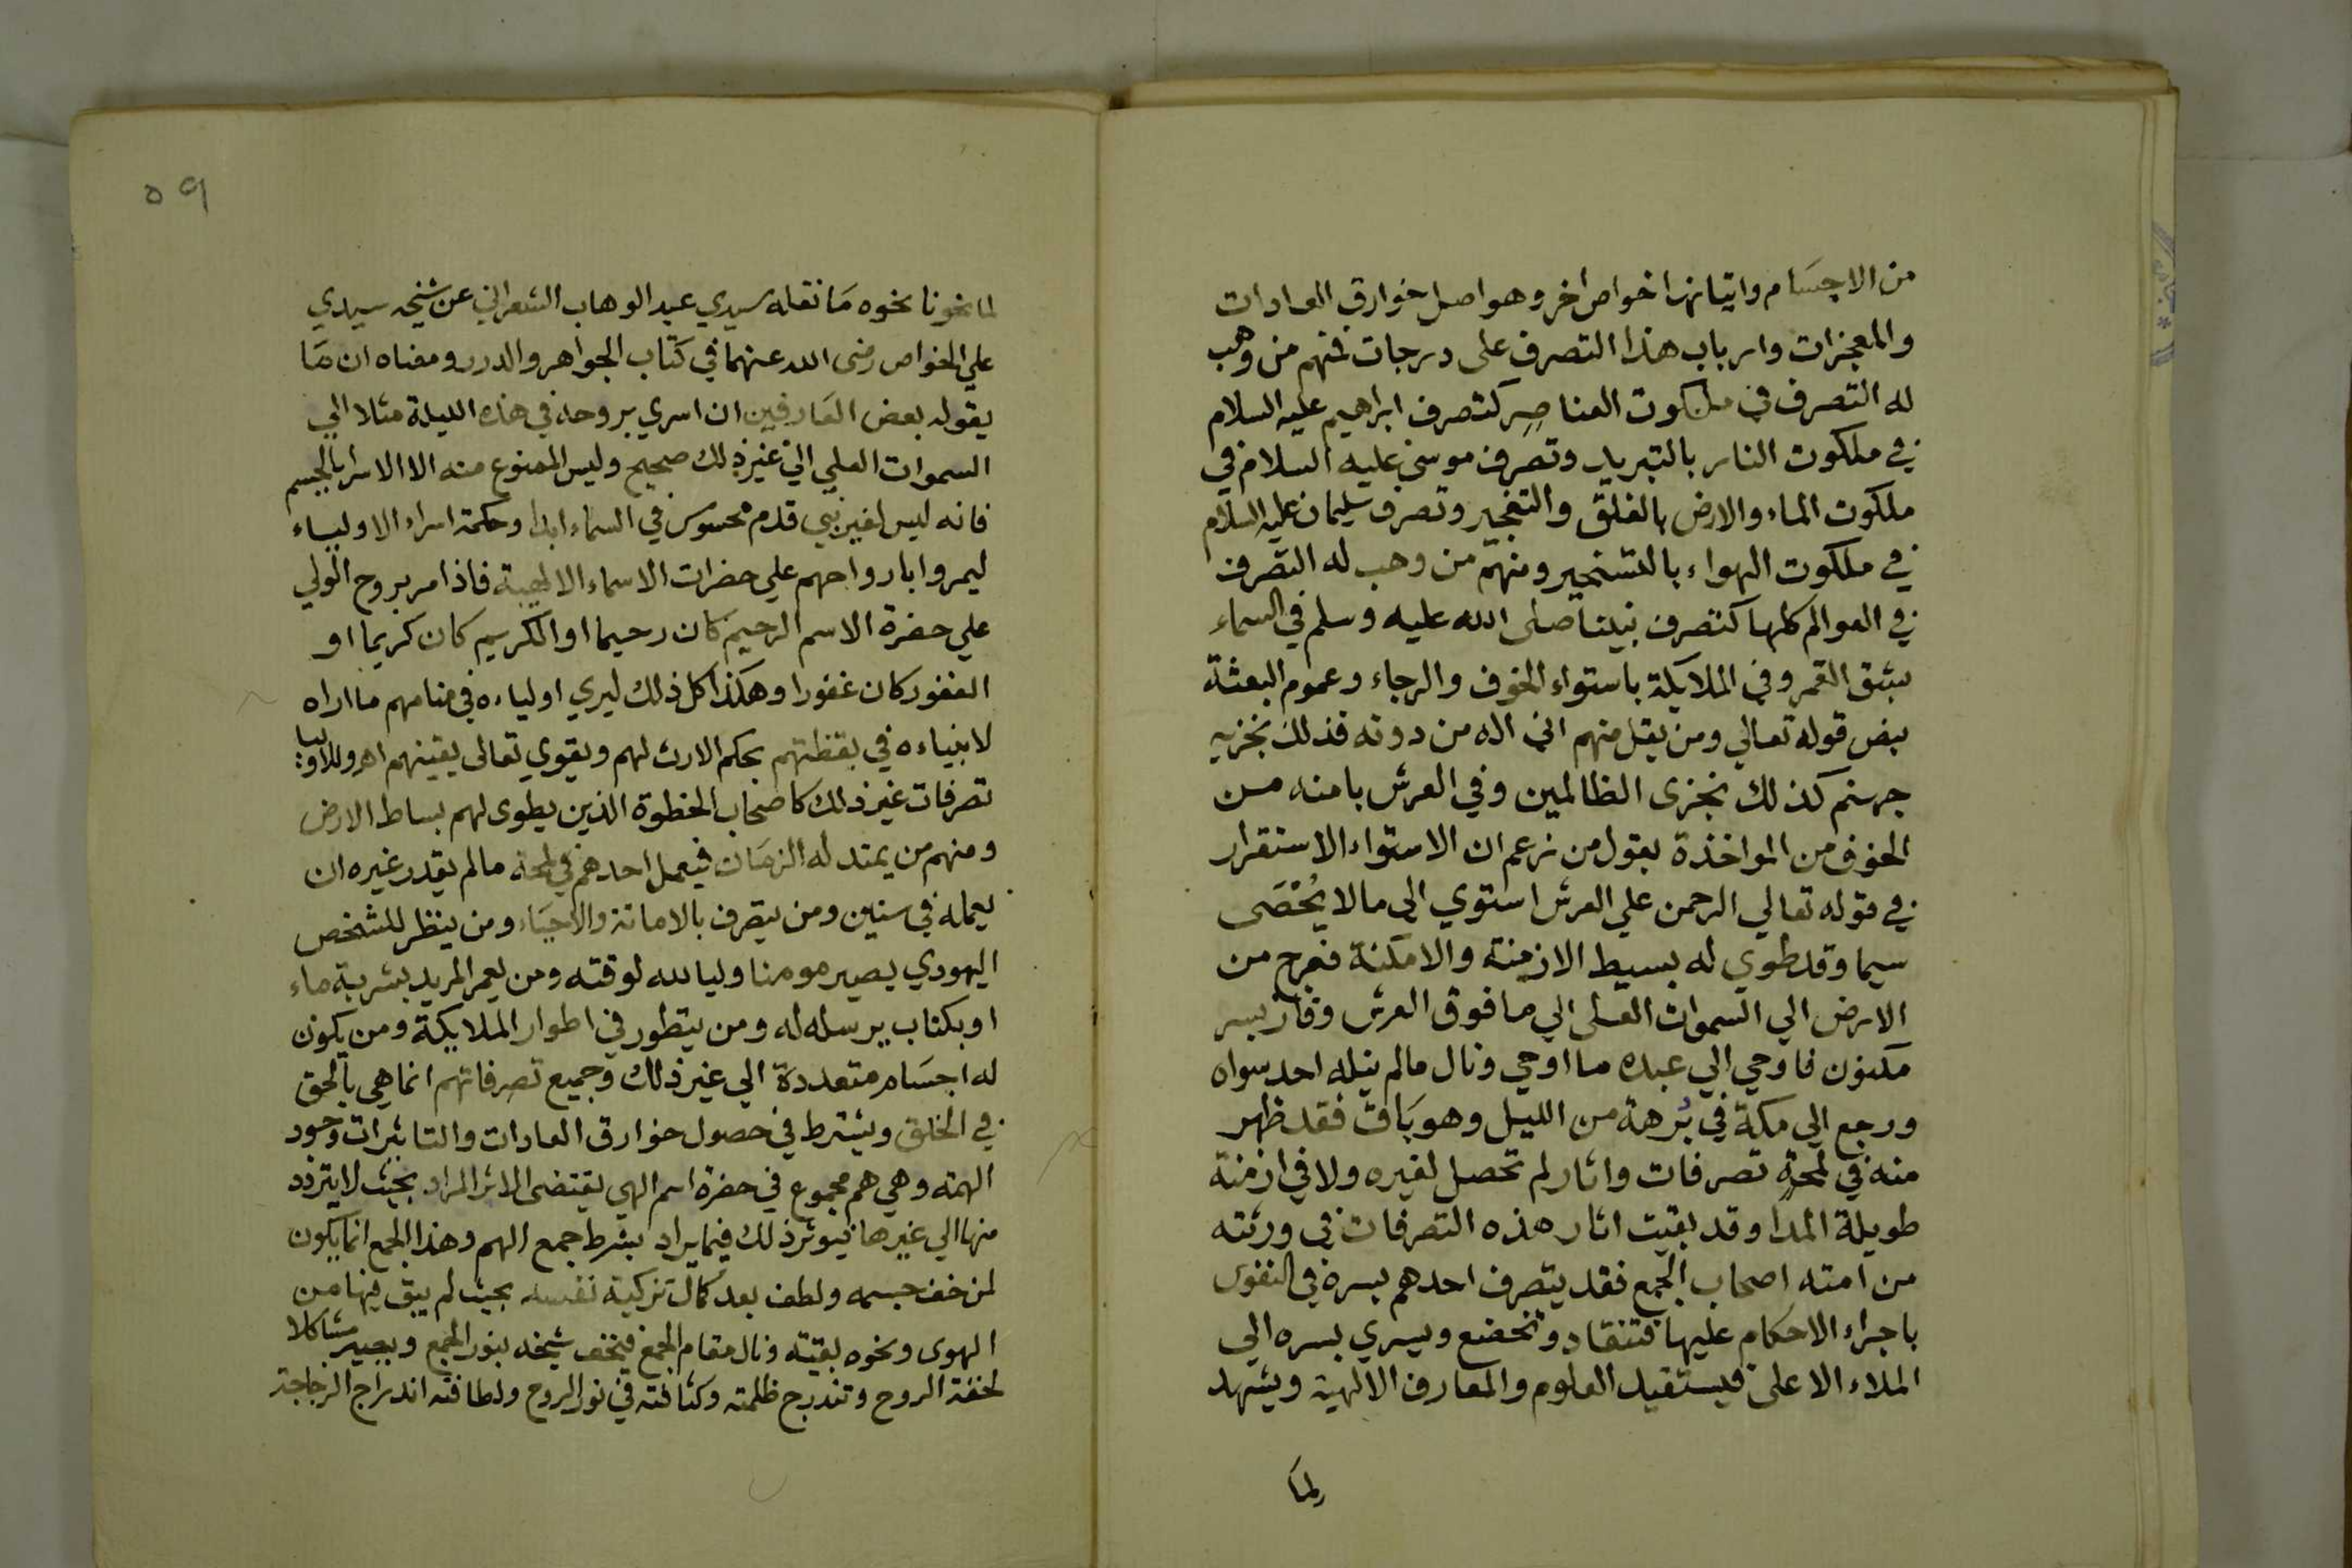 من الاجسَام واتيانها خواص اخر وهو اصل خوارق العادات
والمعجزات وارباب هذا التصرف على درجات فمنهم من وهب
له التصرف في ملكوت العناصِر كتصرف ابراهيم عليه السلام
في ملكوت النار بالتبريد وتصرف موسى عليه السلام في
ملكوت الماء والارض بالفلق والتفجير وتصرف سليمان عليه السلام
في ملكوت الهواء بالتسخير ومنهم من وهب له التصرف
في العوالم كلها كتصرف نبينا صلى الله عليه وسلم في السماء
بشق القمر وفي الملايكة باستواء الخوف والرجاء وعموم البعثة
بنص قوله تعالي ومن يقل منهم اني اله من دونه فذلك نجزيه
جهنم كذلك نجزى الظالمين وفي العرش بامنه من
الخوف من المواخذة بقول من زعم ان الاستواء الاستقرار
في قوله تعالي الرحمن علي العرش استوي الي مالا يُحْصَى
سيما وقد طوي له بسيط الازمنة والامكنة فعرج من
الارض الي السموات العلى الي ما فوق العرش وفاز بسر
مكنون فاوحي الي عبده ما اوحي ونال مالم ينله احد سواه
ورجع الي مكة في بُرهة من الليل وهو بَاق فقد ظهر
منه في لمحةٍ تصرفات واثار لم تحصل لغيره ولا في ازمنة
طويلة المدا وقد بقيت اثار هذه التصرفات في ورثته
من امته اصحاب الجمع فقد يتصرف احدهم بسره في النفوس
باجراء الاحكام عليها فتنقاد وتخضع ويسري بسره الي
الملاء الاعلى فيستفيد العلوم والمعارف الالهية ويشهد
لما
٥٩
لما نحونا نحوه مَا نقله سيدي عبد الوهاب الشعراني عن شيخه سيدي
علي الخواص رضى الله عنهما في كتاب الجواهر والدرر ومعناه ان مَا
يقوله بعض العَارفين ان اسري بروحه في هذه الليلة مثلا الي
السموات العلي الي غير ذلك صحيح وليس الممنوع منه الا الاسرا بالجسم
فانه ليس لغير نبي قدم محسوس في السماء ابدا وحكمة اسراء الاولياء
ليمروا بارواحهم علي حضرات الاسماء الالهية فاذا مر بروح الولي
علي حضرة الاسم الرحيم كان رحيما او الكريم كان كريما او
الغفور كان غفورا وهكذا كل ذلك ليري اولياءه في منامهم ما اراه
لانبياءه في يقظتهم بحكم الارث لهم ويقوي تعالى يقينهم اهـ وللاوليا
تصرفات غير ذلك كاصحاب الخطوة الذين يطوى لهم بساط الارض
ومنهم من يمتد له الزمَان فيعمل احدهم في لمحة مالم يقدر غيره ان
يعمله في سنين ومن يتصرف بالاماتة والاحيَاء ومن ينظر للشخص
اليهودي يصير مومنا وليا لله لوقته ومن يعمر المريد بشربة ماء
او بكتاب يرسله له ومن يتطور في اطوار الملايكة ومن يكون
له اجسَام متعددة الي غير ذلك وجميع تصرفاتهم انما هي بالحق
في الخلق ويشترط في حصول خوارق العادات والتاثيرات وجود
الهمة وهي هم مجموع في حضرة اسم الهي يقتضى الاثر المراد بحيث لا يتردد
منها الي غيرها فيوثر ذلك فيما يراد بشرط جمع الهم وهذا الجمع انما يكون
لمن خف جسمه ولطف بعد كمال تزكية نفسه بحيث لم يبق فيها من
الهوى ونحوه بقية ونال مقام الجمع فيخف شبحه بنور الجمع ويصير مشاكلا
لخفة الروح وتندرج ظلمته وكثافته في نور الروح ولطافته اندراج الزجاجة